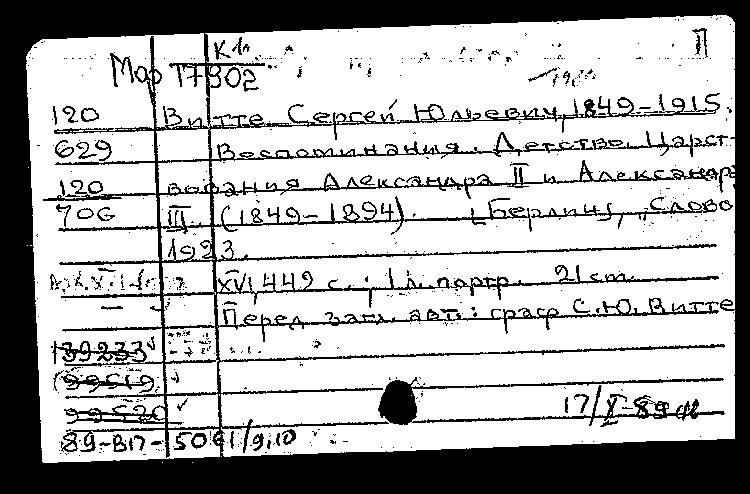 К 1л П
Мор 17902
120 Витте Сергей Юльевич, 1849-1915.
629 Воспоминания. Детство. Царст-
120 вования Александра II и Александра
706 III. (1849-1894). [Берлин], "Слово
1923.
XVI, 449 с.; 1 л. портр. 21 cm.
Перед загл. авт.: граф С.Ю. Витте
139233
99519
99520 17/X-89
89-В17-5061/9,10